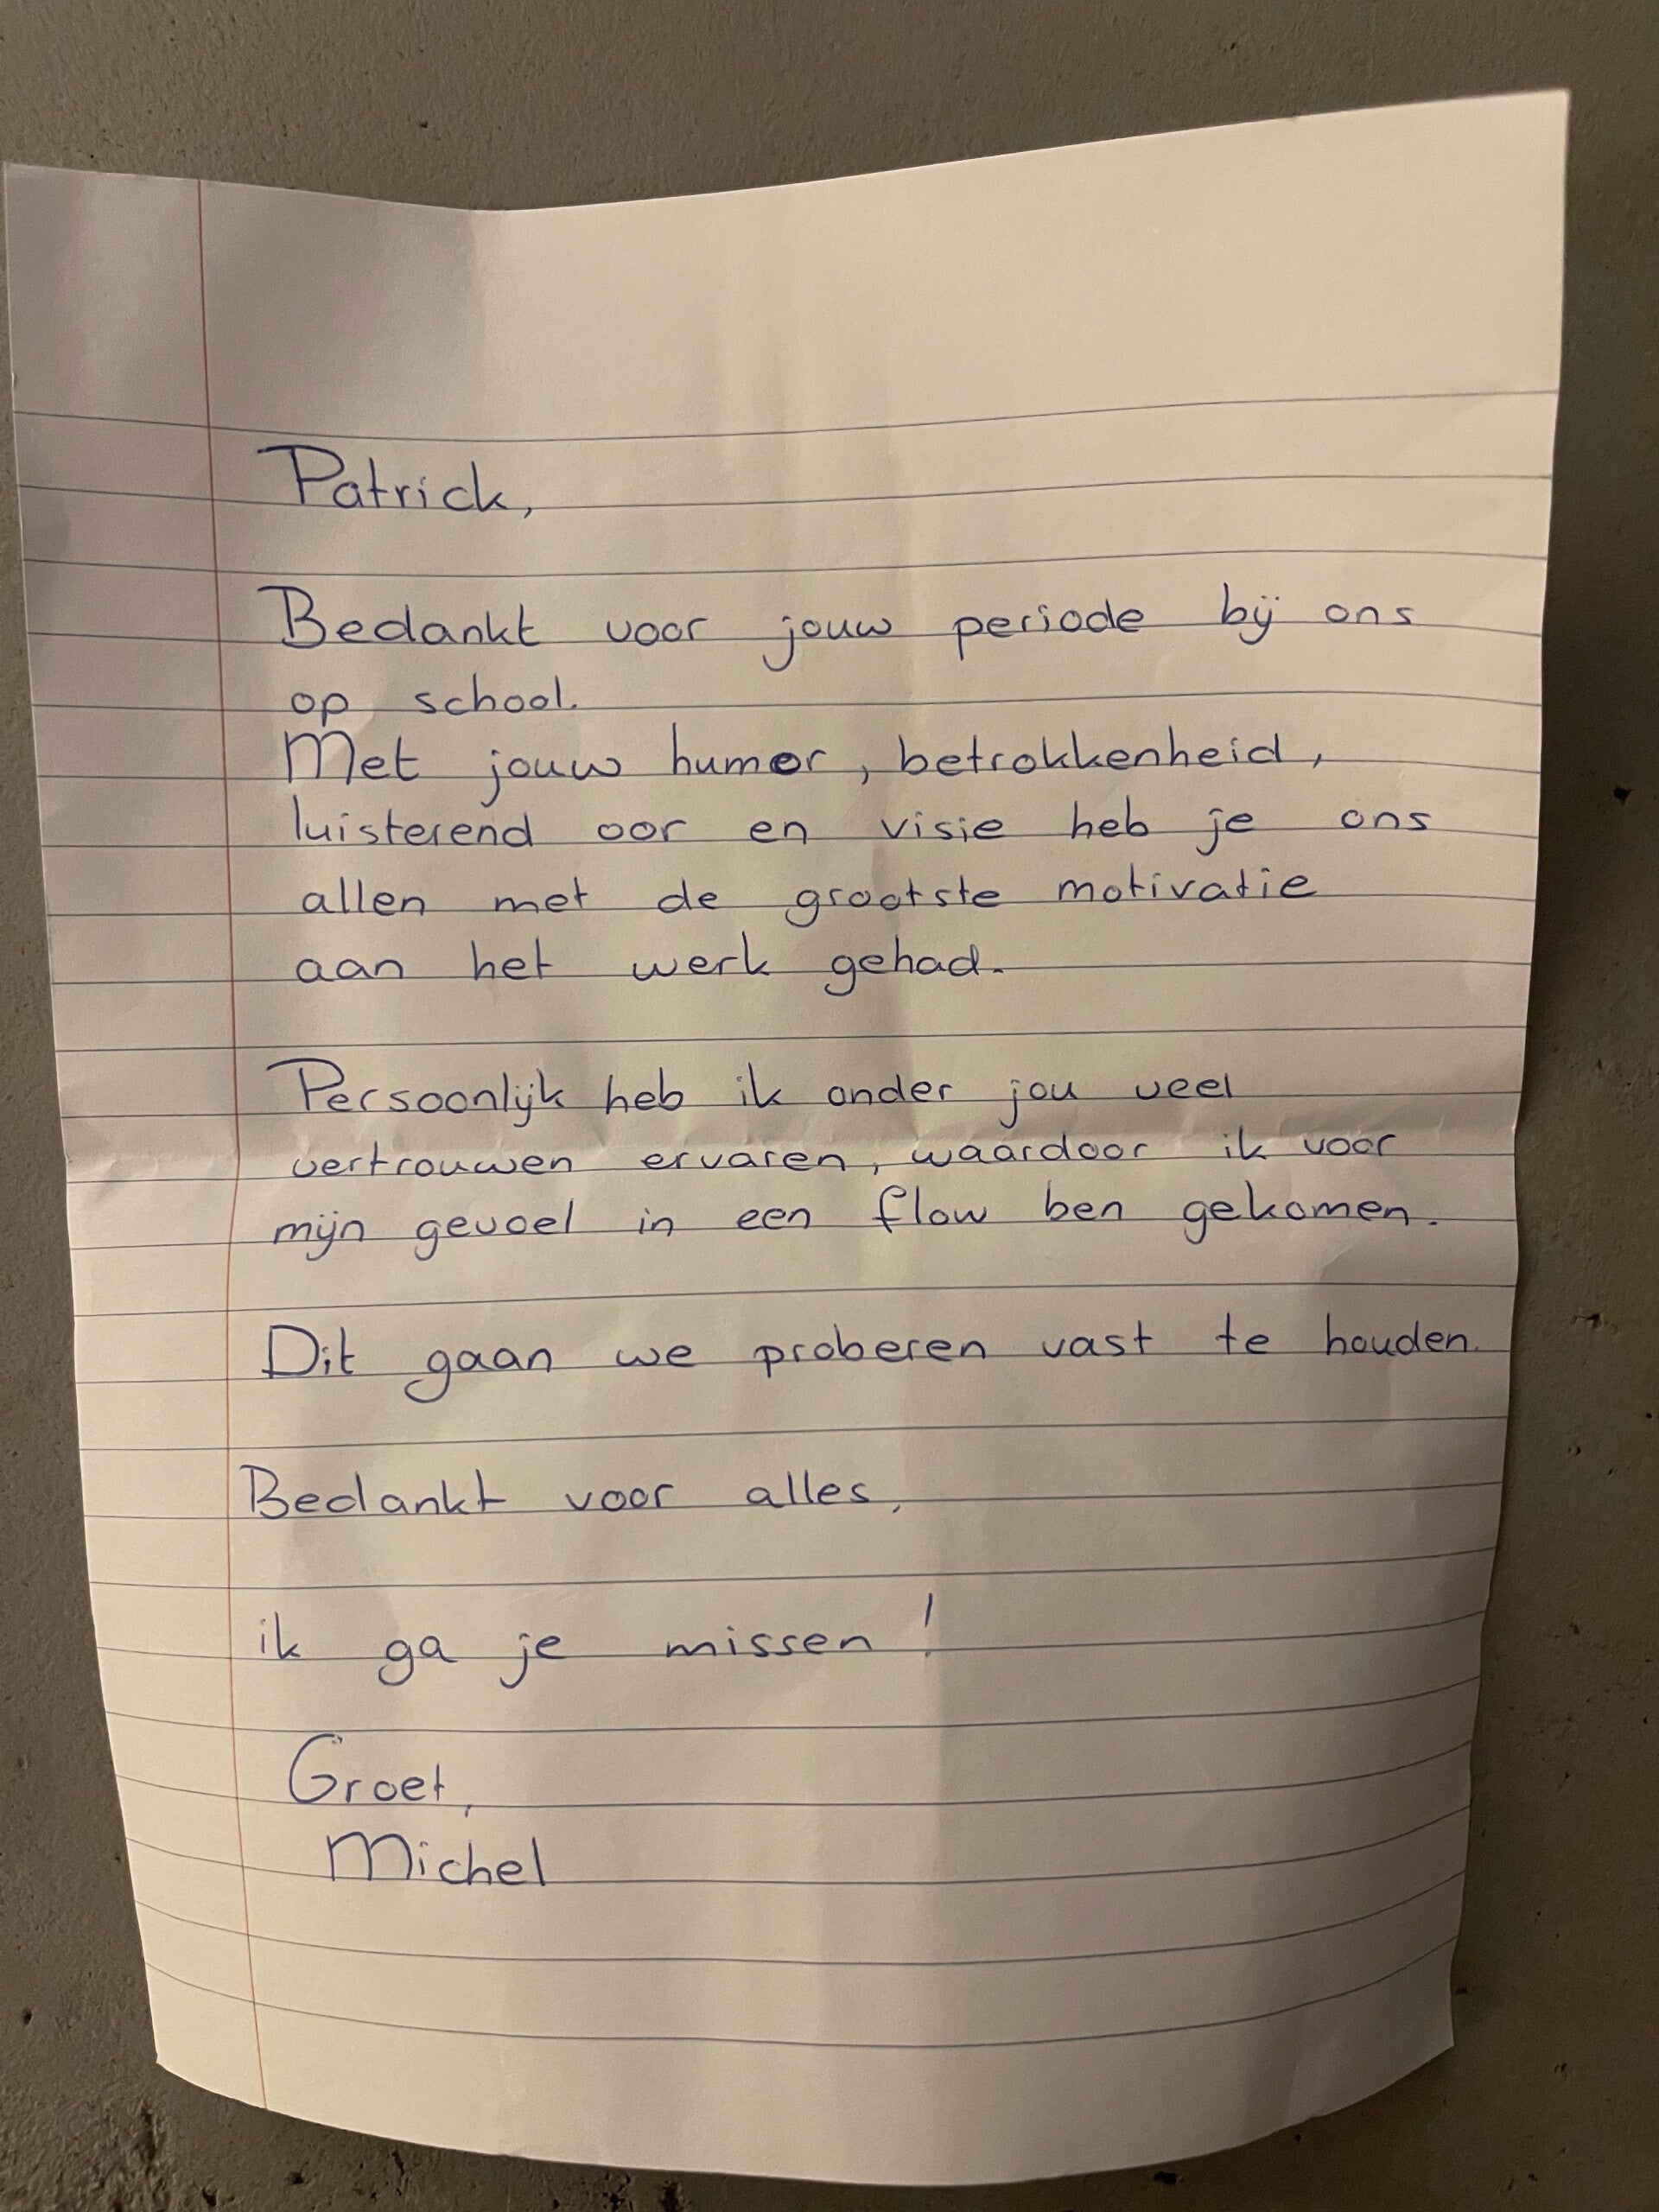 Patrick,
Bedankt voor jouw periode bij ons
op school.
Met jouw humor, betrokkenheid,
luisterend oor en visie heb je ons
allen met de grootste motivatie
aan het werk gehad.
Persoonlijk heb ik onder jou veel
vertrouwen ervaren, waardoor ik voor
mijn gevoel in een flow ben gekomen.
Dit gaan we proberen vast te houden.
Bedankt voor alles,
ik ga je missen!
Groet,
Michel